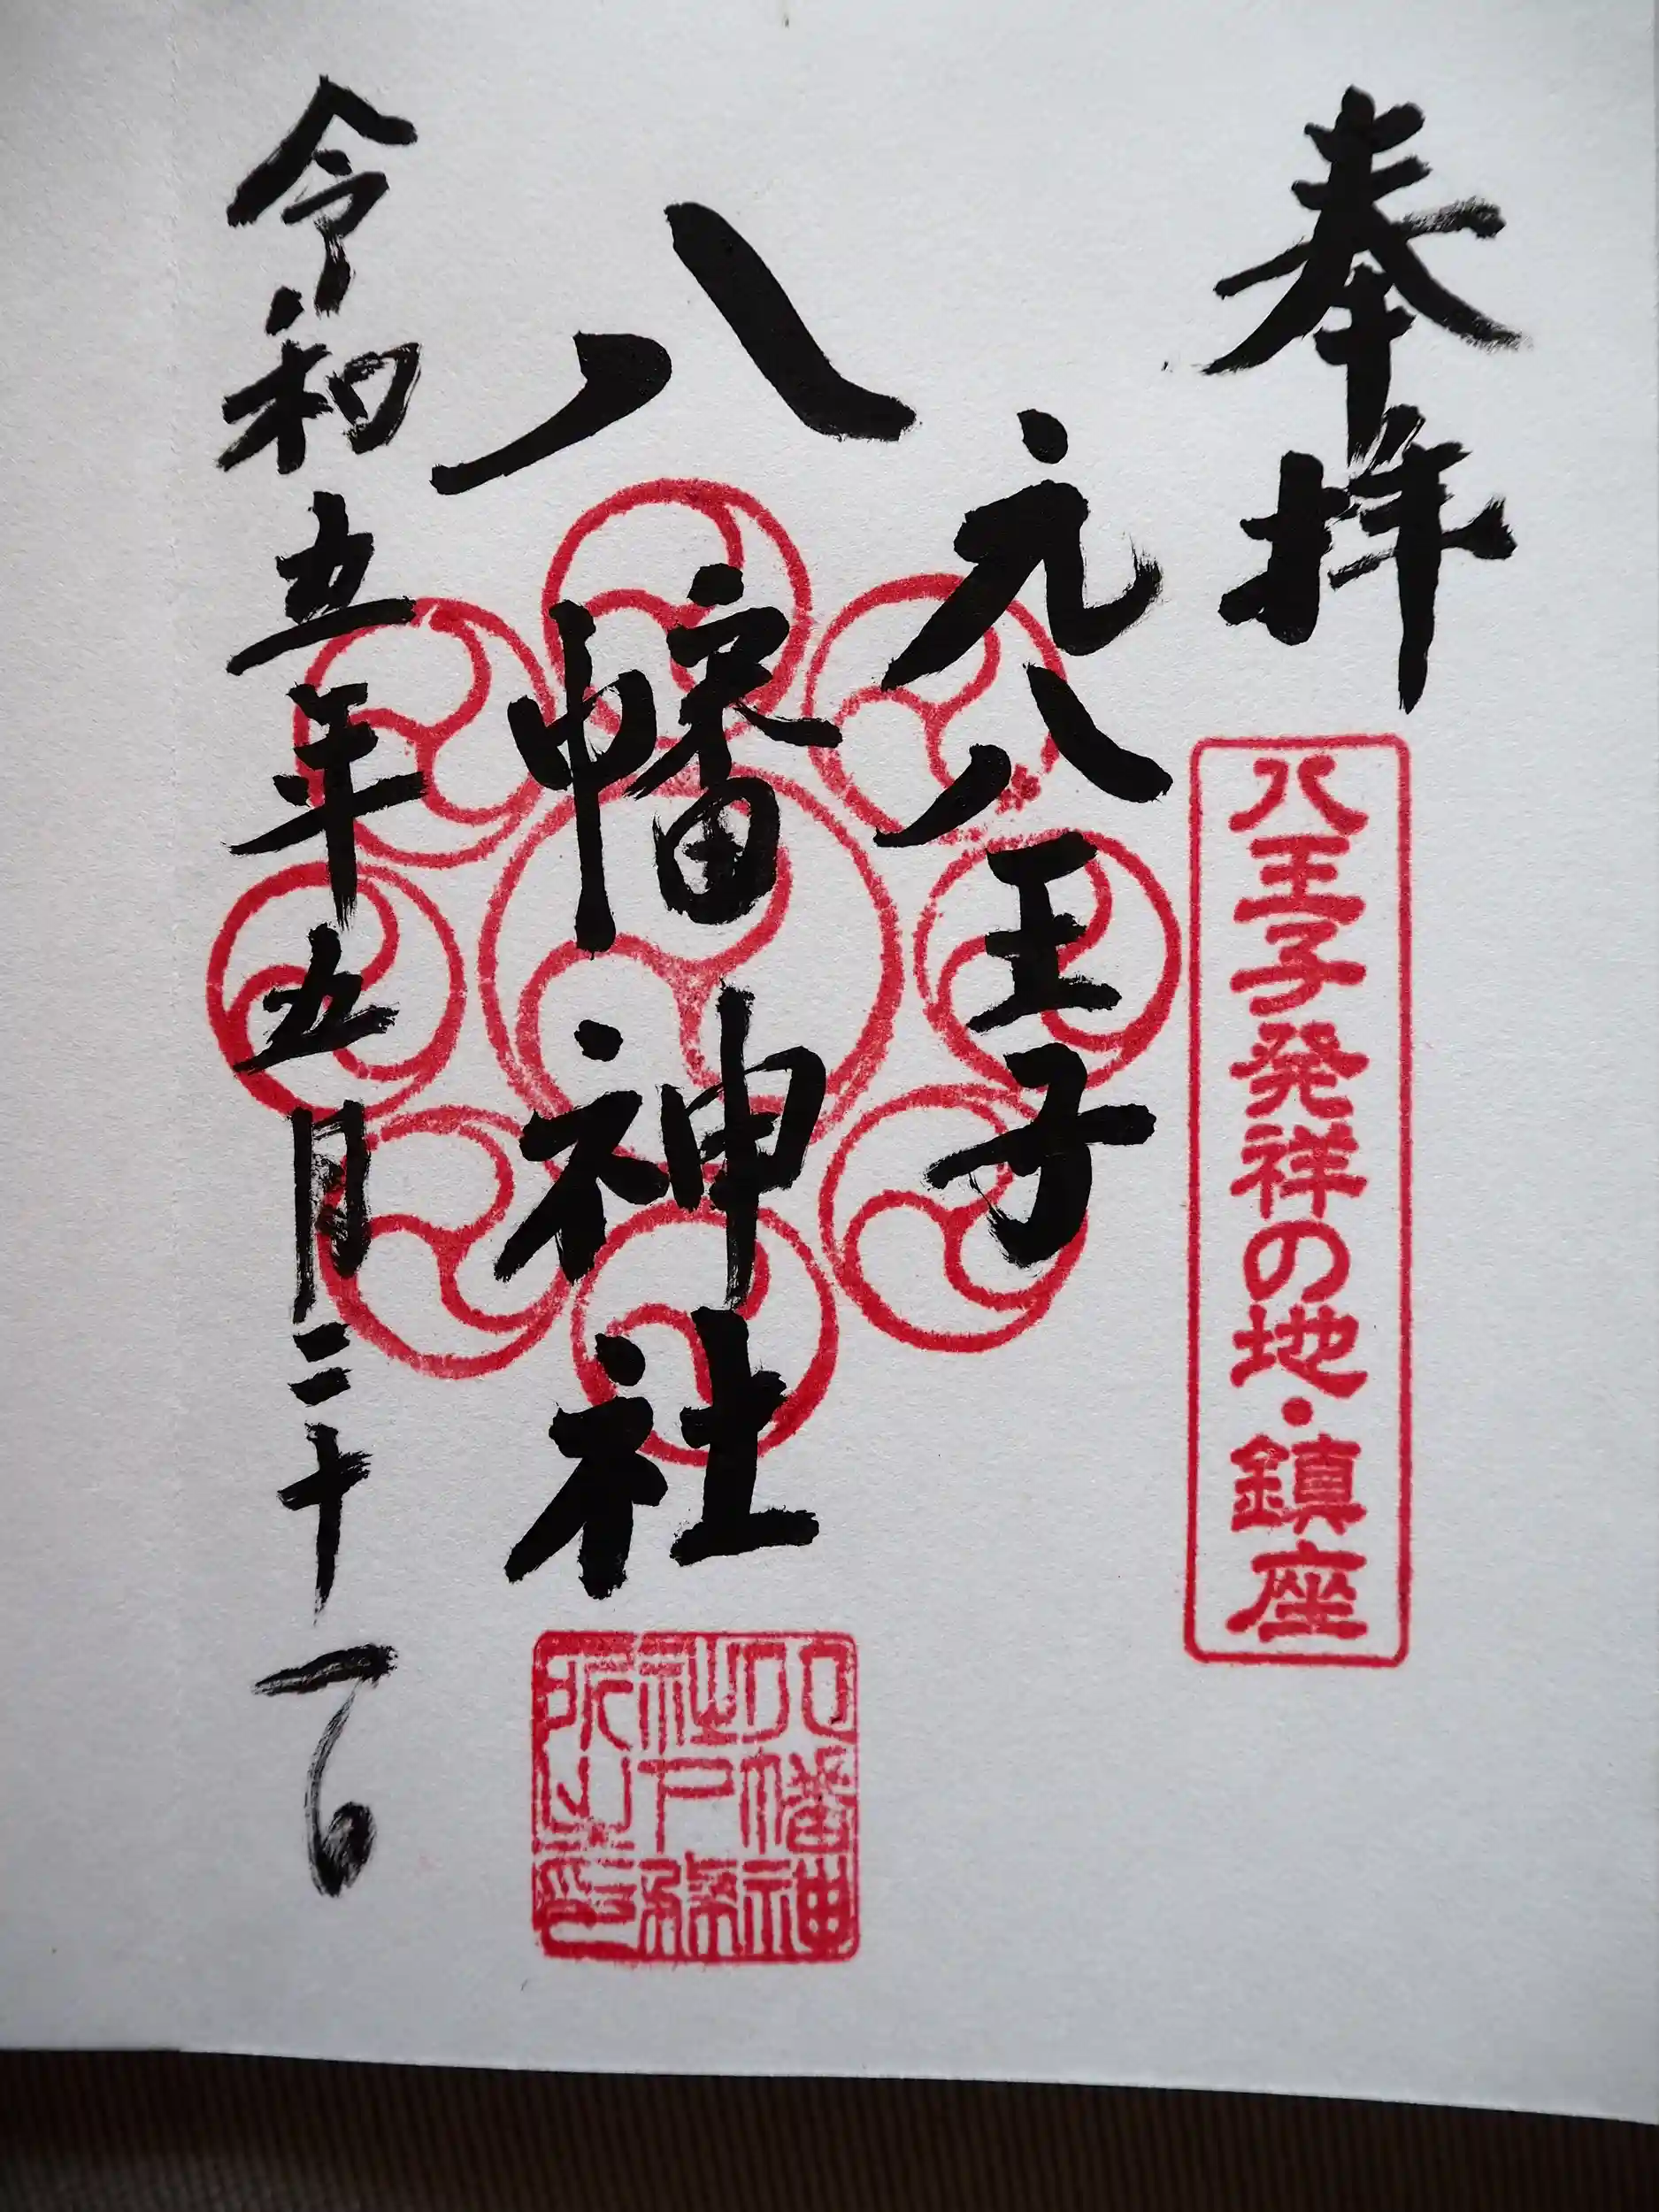 奉拝
八王子発祥の地・鎮座
元八王子
八幡神社
令和五年五月二十一日
八幡神
社
印